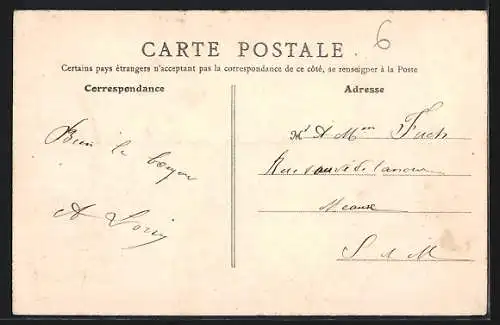 6
CARTE POSTALE.
Certains pays étrangers n'acceptant pas la correspondance de ce côté, se renseigner à la Poste
Correspondance
Adresse
Bien le bonjour
A
Mr & Mme Fuch
Rue
Meaux
S & M